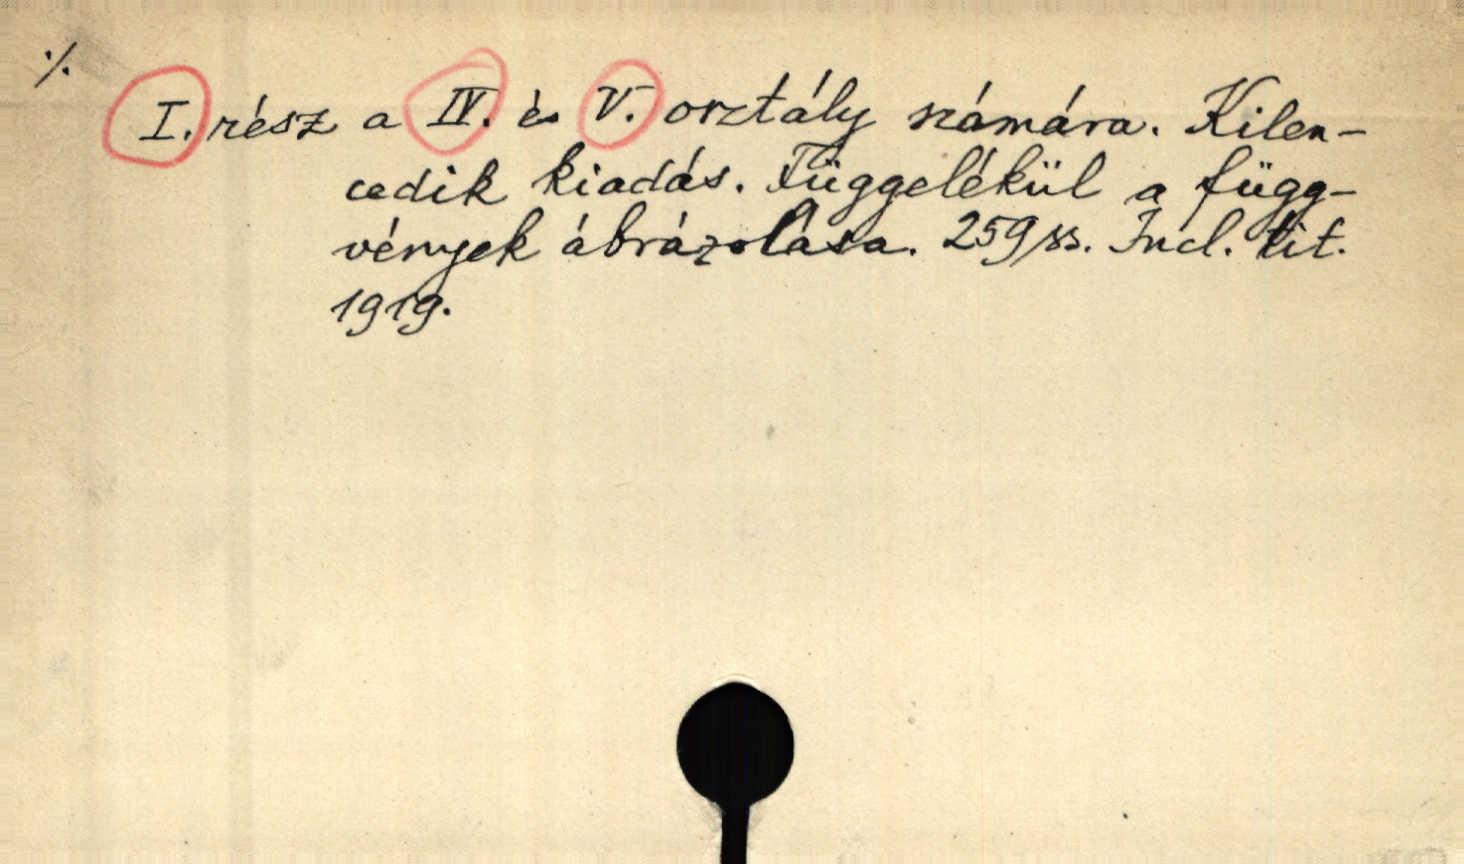 ·/.
I. rész a IV. és V. osztály számára. Kilen-
cedik kiadás. Függelékül a függ-
vények ábrázolása. 259 ss. Incl. tit.
1919.